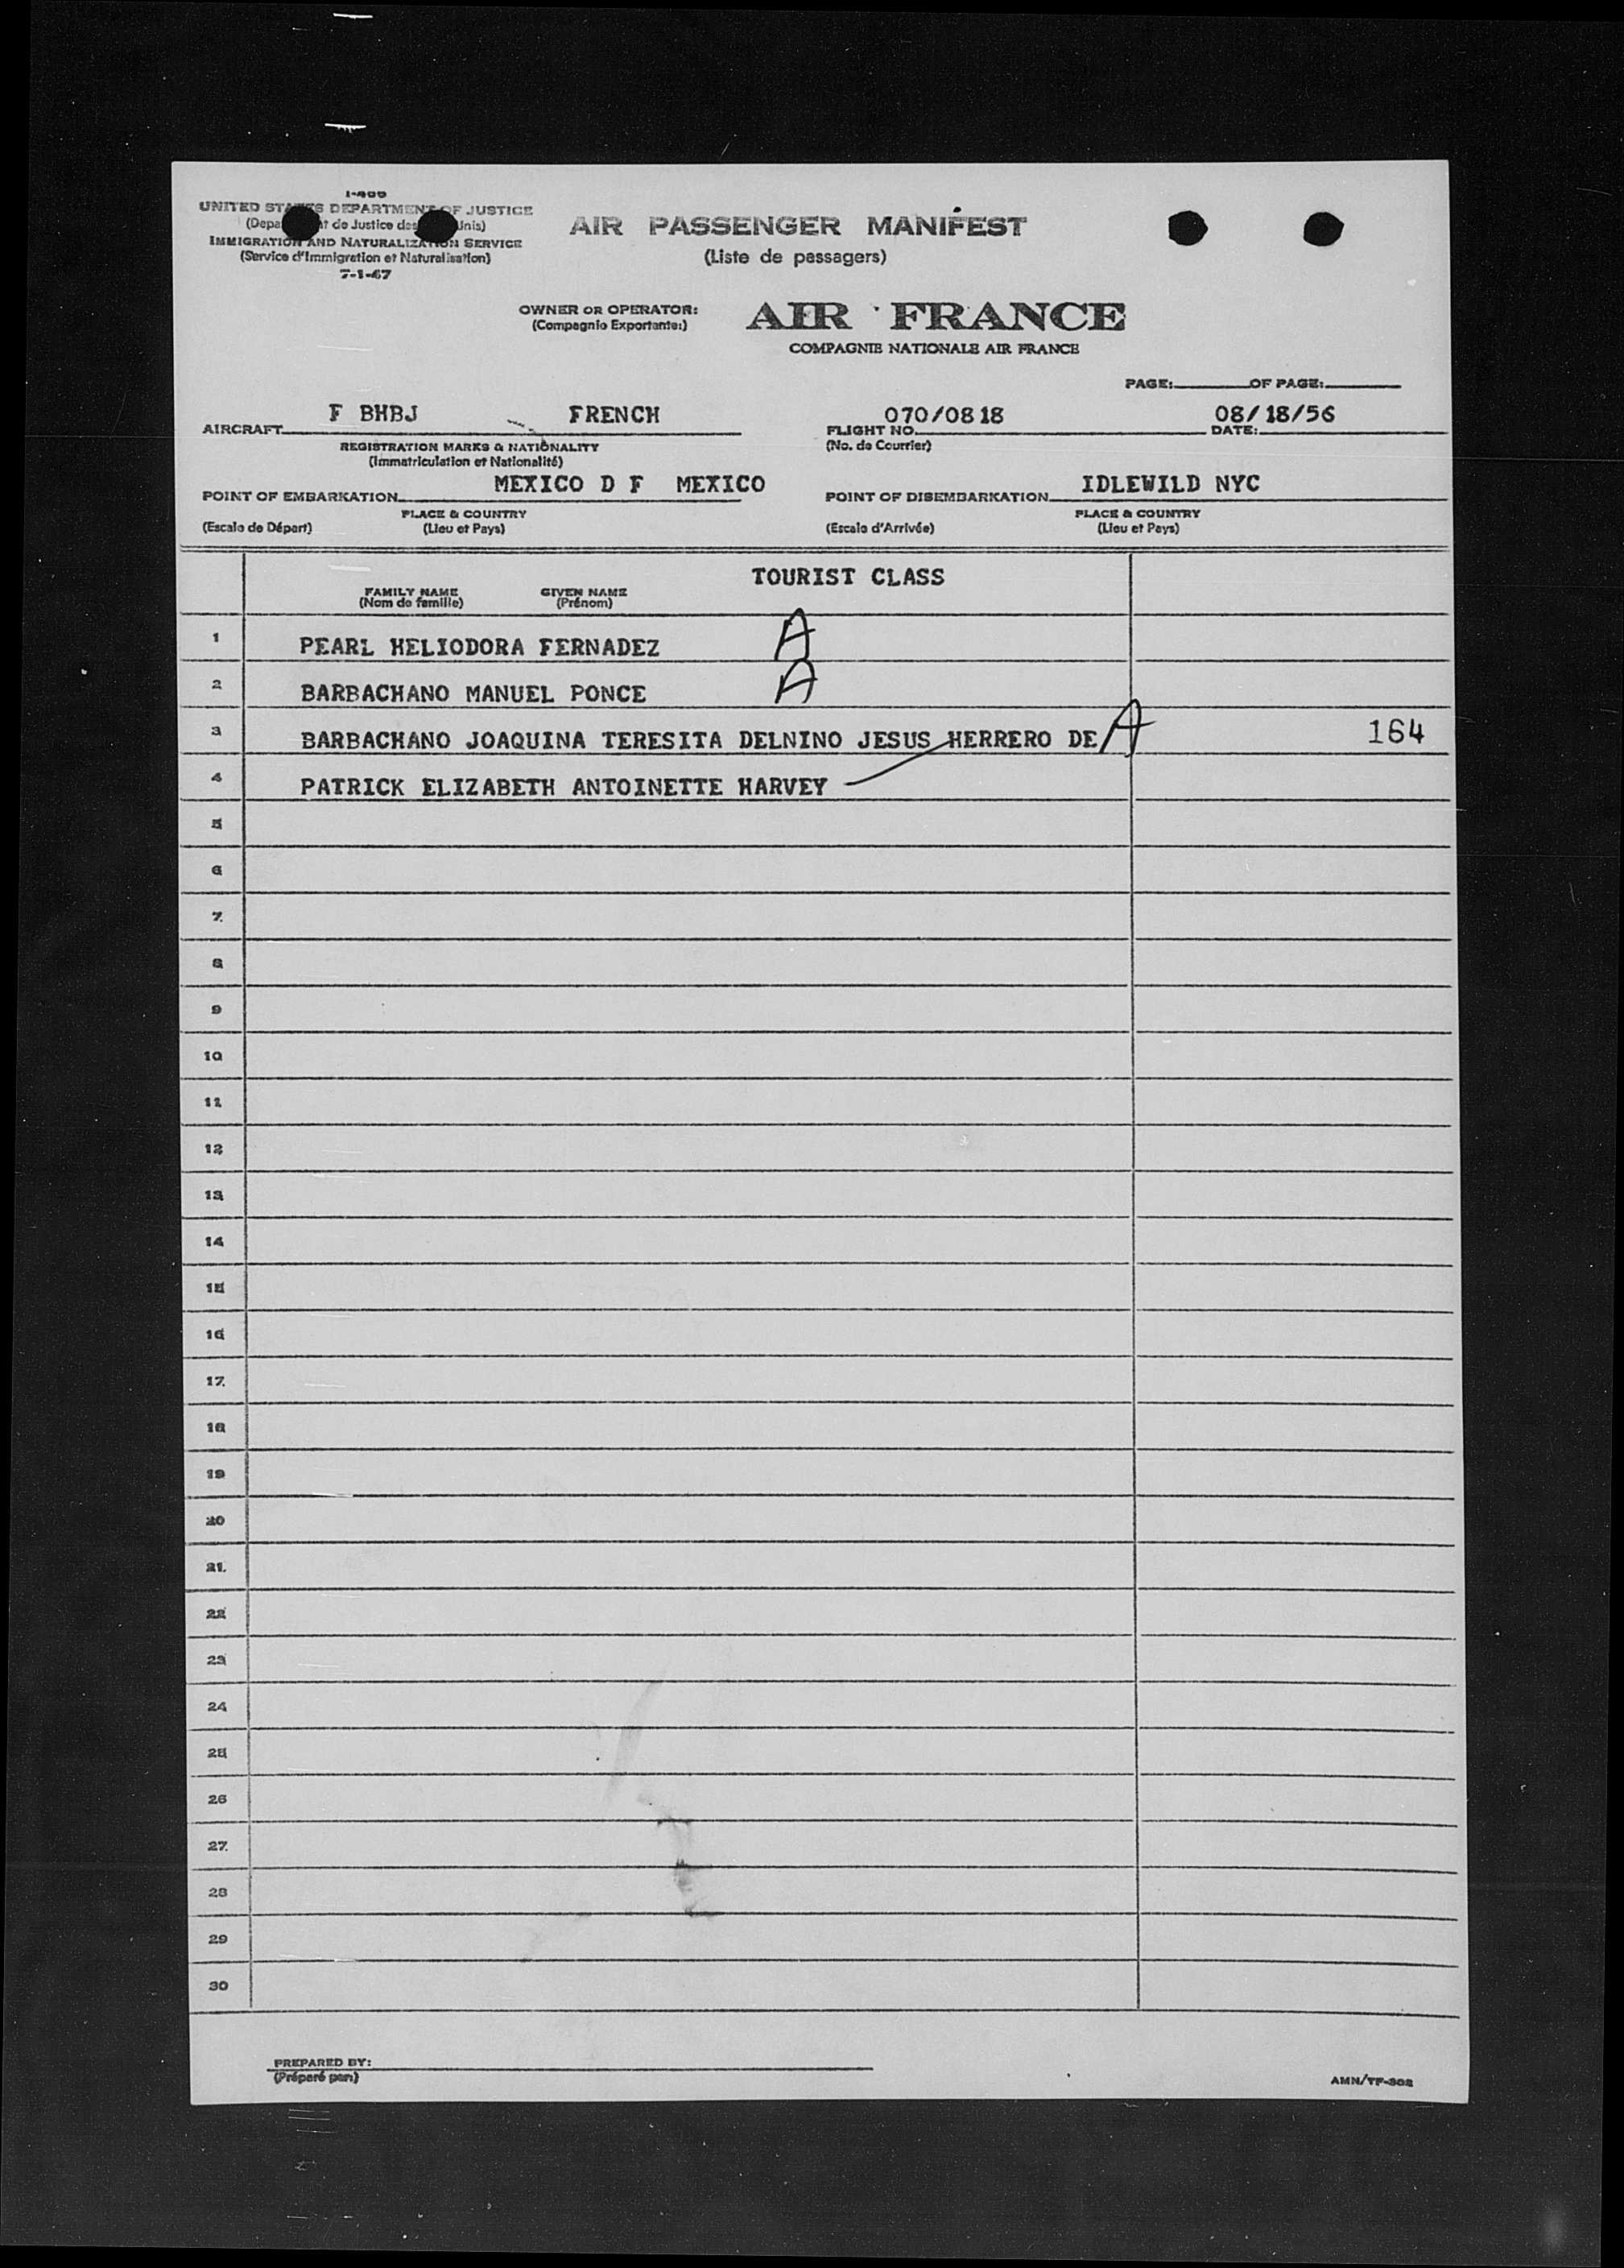 UNITED STATES DEPARTMENT OF JUSTICE
de Justice des
IMMIGRATION AND NATURALIZATION SERVICE
(Service d'Immigration et Naturalisation)
AIR PASSENGER MANIFEST
(Liste de passagers)
OWNER OR OPERATOR:
(Compagnie Exportante:)
AIR FRANCE
COMPAGNIE NATIONALE AIR FRANCE
PAGE: OF PAGE:
AIRCRAFT F BHBJ FRENCH
REGISTRATION MARKS & NATIONALITY
(Immatriculation et Nationalité)
FLIGHT NO. 070/0818
(No. de Courrier)
DATE: 08/18/56
POINT OF EMBARKATION MEXICO D F MEXICO
PLACE & COUNTRY
(Escale de Départ) (Lieu et Pays)
POINT OF DISEMBARKATION IDLEWILD NYC
PLACE & COUNTRY
(Escale d'Arrivée) (Lieu et Pays)
TOURIST CLASS
FAMILY NAME GIVEN NAME
(Nom de famille) (Prénom)
1 PEARL HELIODORA FERNADEZ A
2 BARBACHANO MANUEL PONCE A
3 BARBACHANO JOAQUINA TERESITA DELNINO JESUS HERRERO DE A 164
4 PATRICK ELIZABETH ANTOINETTE HARVEY
5
6
7
8
9
10
11
12
13
14
15
16
17
18
19
20
21
22
23
24
25
26
27
28
29
30
PREPARED BY:
(Préparé par)
AMN/TF-302